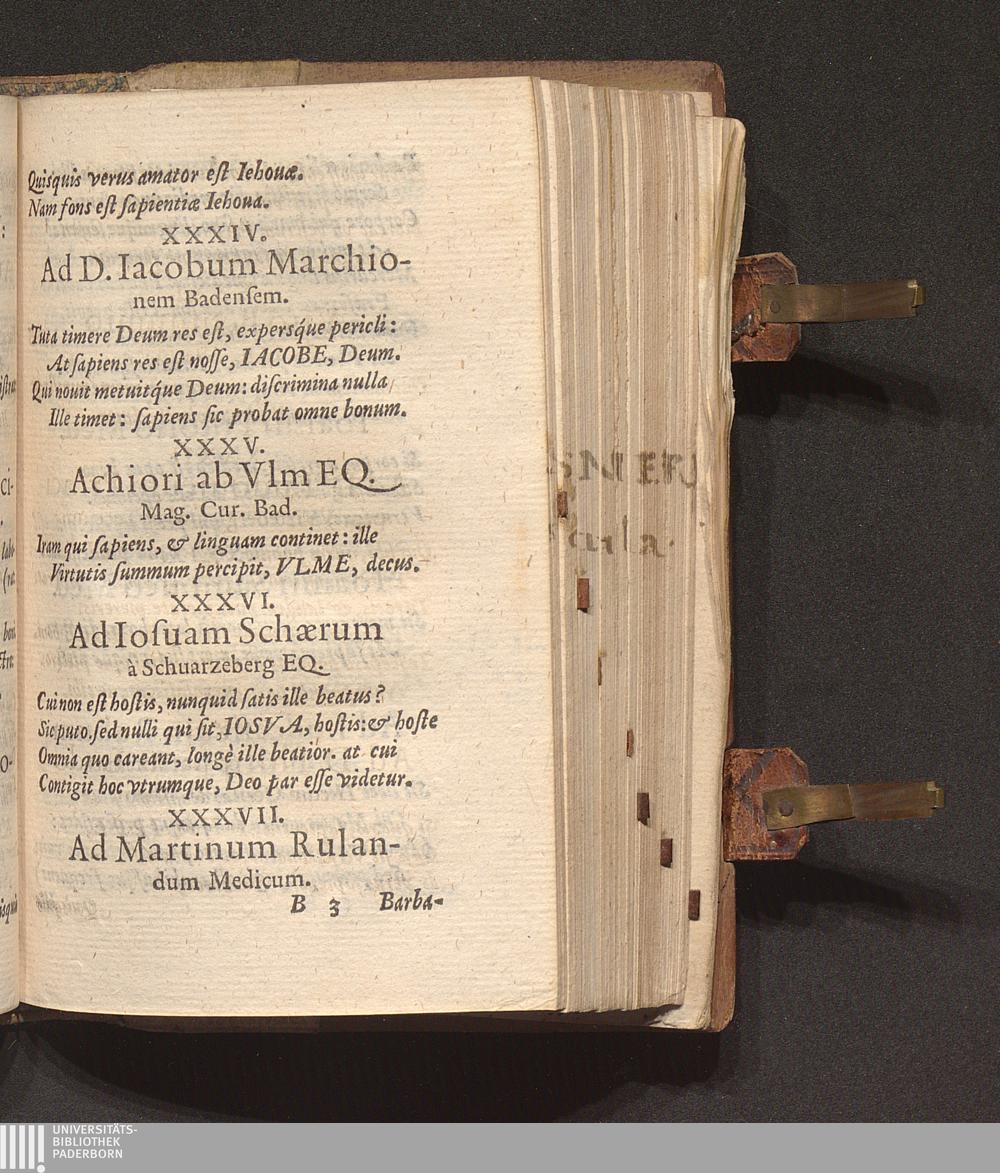 Quisquis verus amator eſt Iehouæ.
Nam fons eſt ſapientiæ Iehoua.
XXXIV.
Ad D. Iacobum Marchio-
nem Badenſem.
Tuta timere Deum res eſt, expersq́ue pericli:
At ſapiens res eſt noſſe, IACOBE, Deum.
Qui nouit metuitq́ue Deum: diſcrimina nulla
Ille timet: ſapiens ſic probat omne bonum.
XXXV.
Achiori ab Vlm EQ.
Mag. Cur. Bad.
Iram qui ſapiens, & linguam continet: ille
Virtutis ſummum percipit, VLME, decus.
XXXVI.
Ad Ioſuam Schærum
à Schuarzeberg EQ.
Cui non eſt hoſtis, nunquid ſatis ille beatus?
Sic puto. ſed nulli qui ſit, IOSVA, hoſtis: & hoſte
Omnia quo careant, longè ille beatior. at cui
Contigit hoc vtrumque, Deo par eſſe videtur.
XXXVII.
Ad Martinum Rulan-
dum Medicum.
B 3 Barba-
UNIVERSITÄTS-
BIBLIOTHEK
PADERBORN